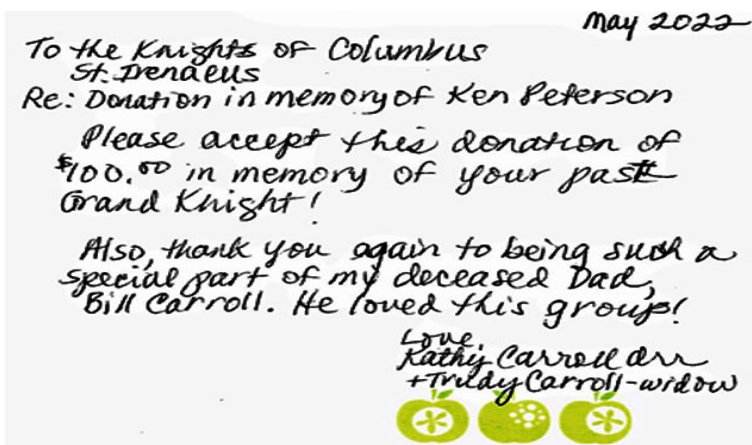 May 2022
To the Knights of Columbus
St. Irenaeus
Re: Donation in memory of Ken Peterson
Please accept this donation of
$100.00 in memory of your past
Grand Knight!
Also, thank you again to being such a
special part of my deceased Dad,
Bill Carroll. He loved this group!
Love,
Kathy Carroll
+Trudy Carroll-widow